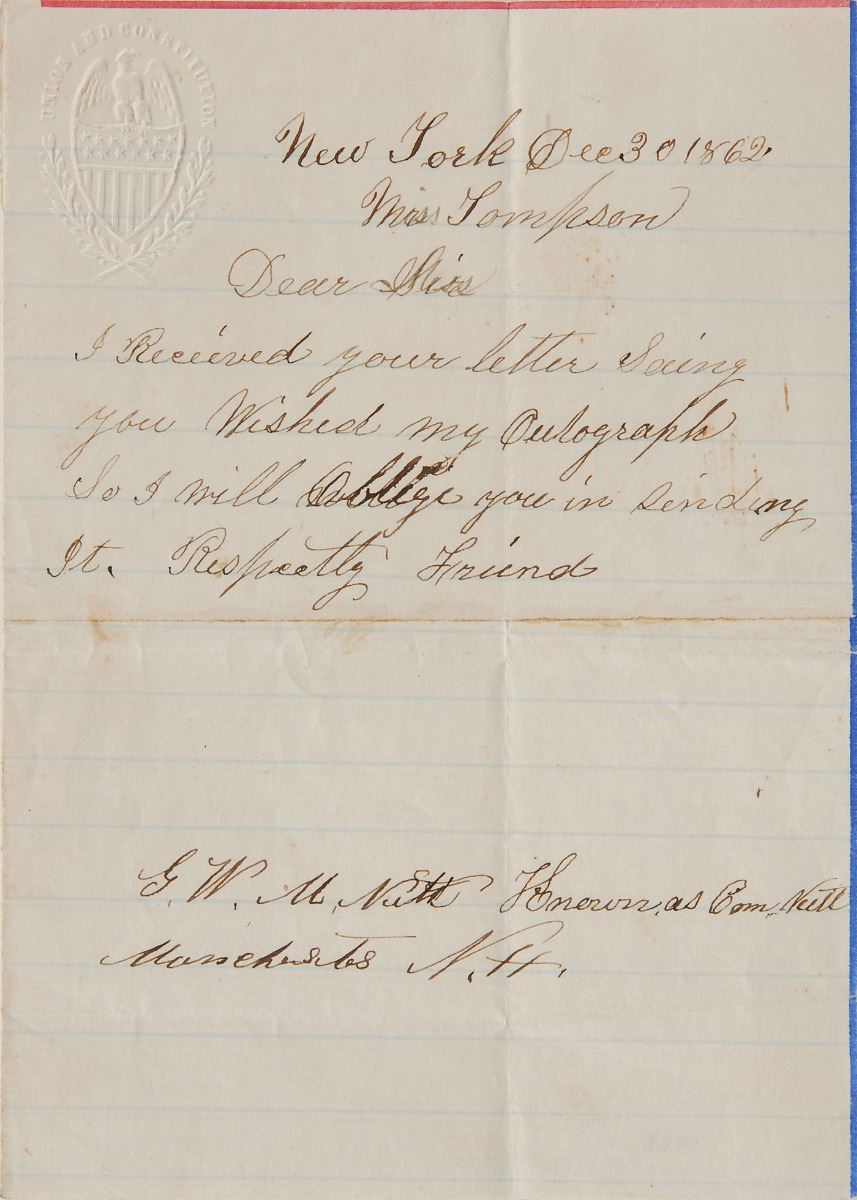 UNION AND CONSTITUTION
New York Dec 30 1862
Miss Tompson
Dear Miss
I Received your letter Saing
you Wished my Autograph
So I will Obblige you in sending
It. Respectly Friend
G. W. M. Nutt Known as Com. Nutt
Manchester N. H.